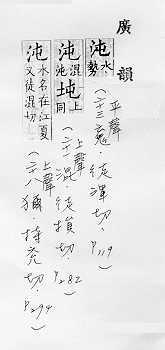 廣韻
沌 水勢
(平聲
二十三魂.徒渾切.P119)
沌 混沌
坉 上同
(上聲
二十一混.徒損切.P282)
沌 水名在江夏又徒混切
(上聲
二十八獮.持兖切.P294)